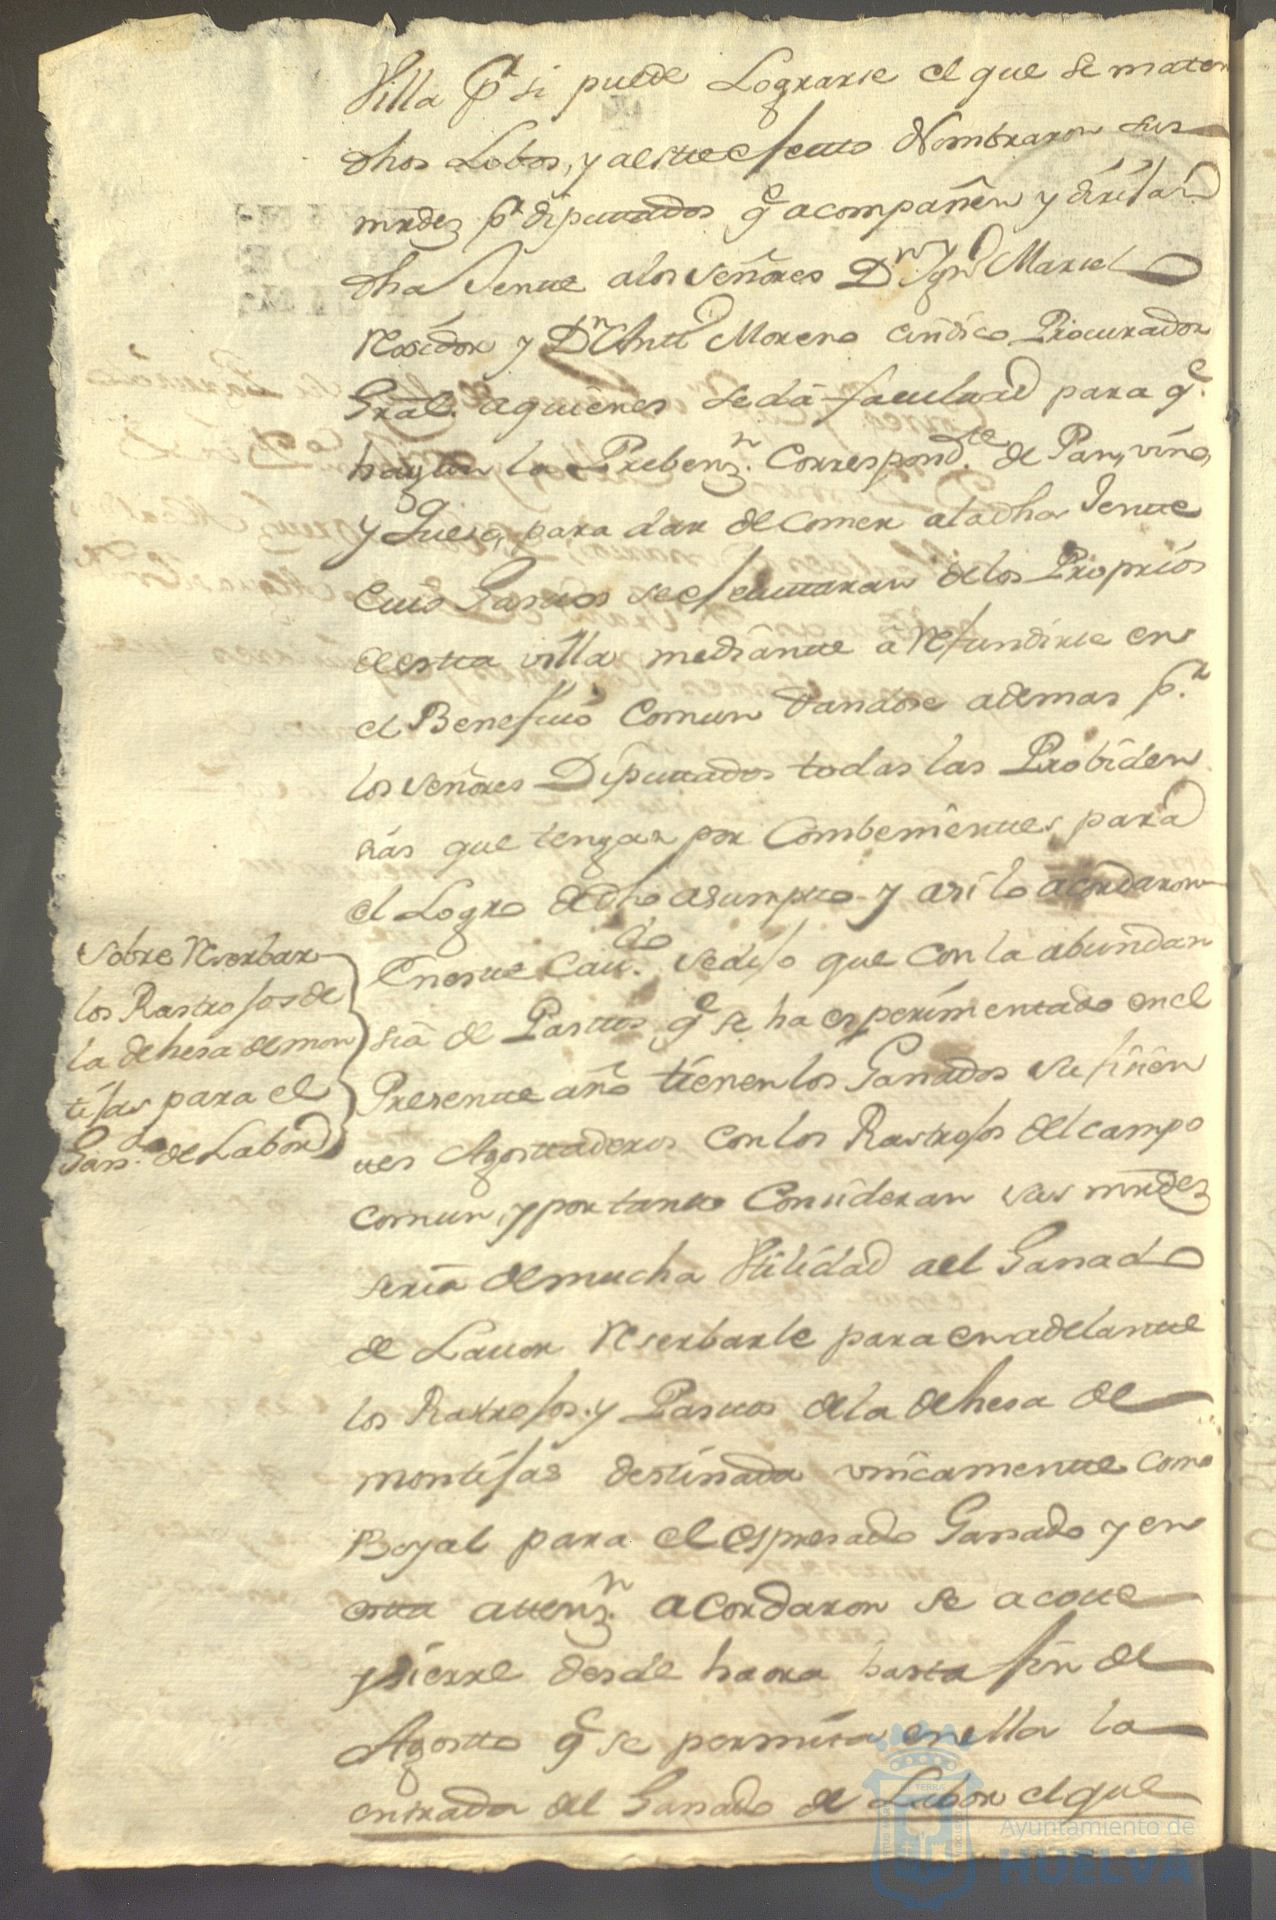 Villa pr. si puede Lograrse el que se maten
dhos Lobos, y al este efecto Nombraron sus
mrdez pr. diputados qe acompañen y dirijan
dha Jente a los Señores Dn. Jph Marcel
Rexidor y Dn. Antt. Moreno Cindico Procurador
Gral. a quienes se dá facultad para qe.
hagan la Prebenzn. Correspondte. de Pan, vino,
y Queso, para dar de Comer a la dha Jente
Cuios Gastos se efectuaran de los Proprios
de esta villa mediante â Refundirse en
el Benefisio Comun dandose ademas pr.
los Señores Diputados todas las Probiden
sias que tengan por Combenientes para
el Logro de dho asumpto y asi lo acordaron
Sobre Reserbar
los Rastrojos de
la dehesa de mon
tijas para el
Gando. de Labor
En este Cavdo. se dijo que con la abundan
sia de Pastos qe se ha esperimentado en el
Presente año tienen los Ganados sufisien
tes Agostaderos con los Rastrojos del campo
comun, y por tanto Consideran sus mrdez
seria de mucha Utilidad a el Ganado
de Lavor Reserbarle para en adelante
los Rastrojos y Pastos de la dehesa de
montijas destinada unicamente como
Boyal para el espresado Ganado y en
esta attenzn. acordaron se acote
y sierre desde haora hasta fin de
Agosto qe se permita en ella la
entrada del Ganado de Labor el que
Ayuntamiento de
HUELVA